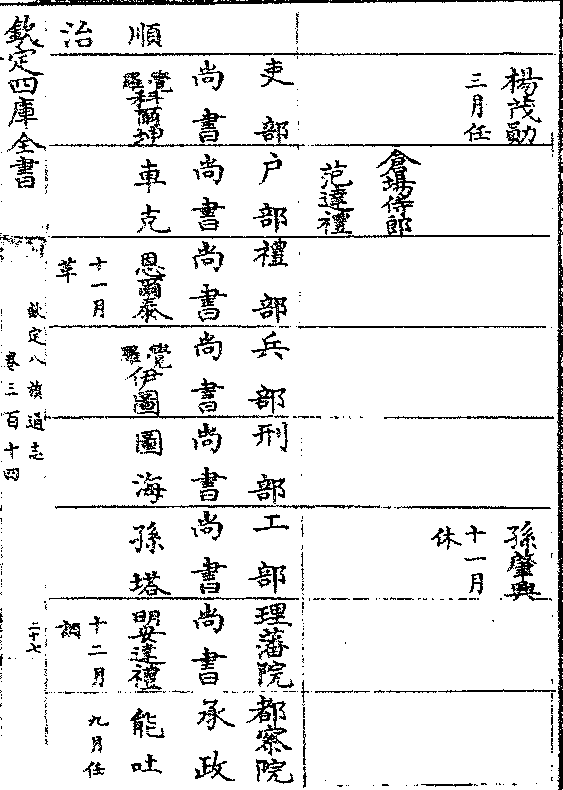 楊茂勛
三月任
倉場侍郎
范達禮
孫肇興
十一月
休
順治
吏部
尚書
覺羅科爾坤
戶部
尚書
車克
禮部
尚書
恩爾泰
十一月
革
兵部
尚書
覺羅伊圖
刑部
尚書
圖海
工部
尚書
孫塔
理藩院
尚書
明安達禮
十二月
調
都察院
承政
能吐
九月任
欽定四庫全書
欽定八旗通志
卷三百十四
二十七